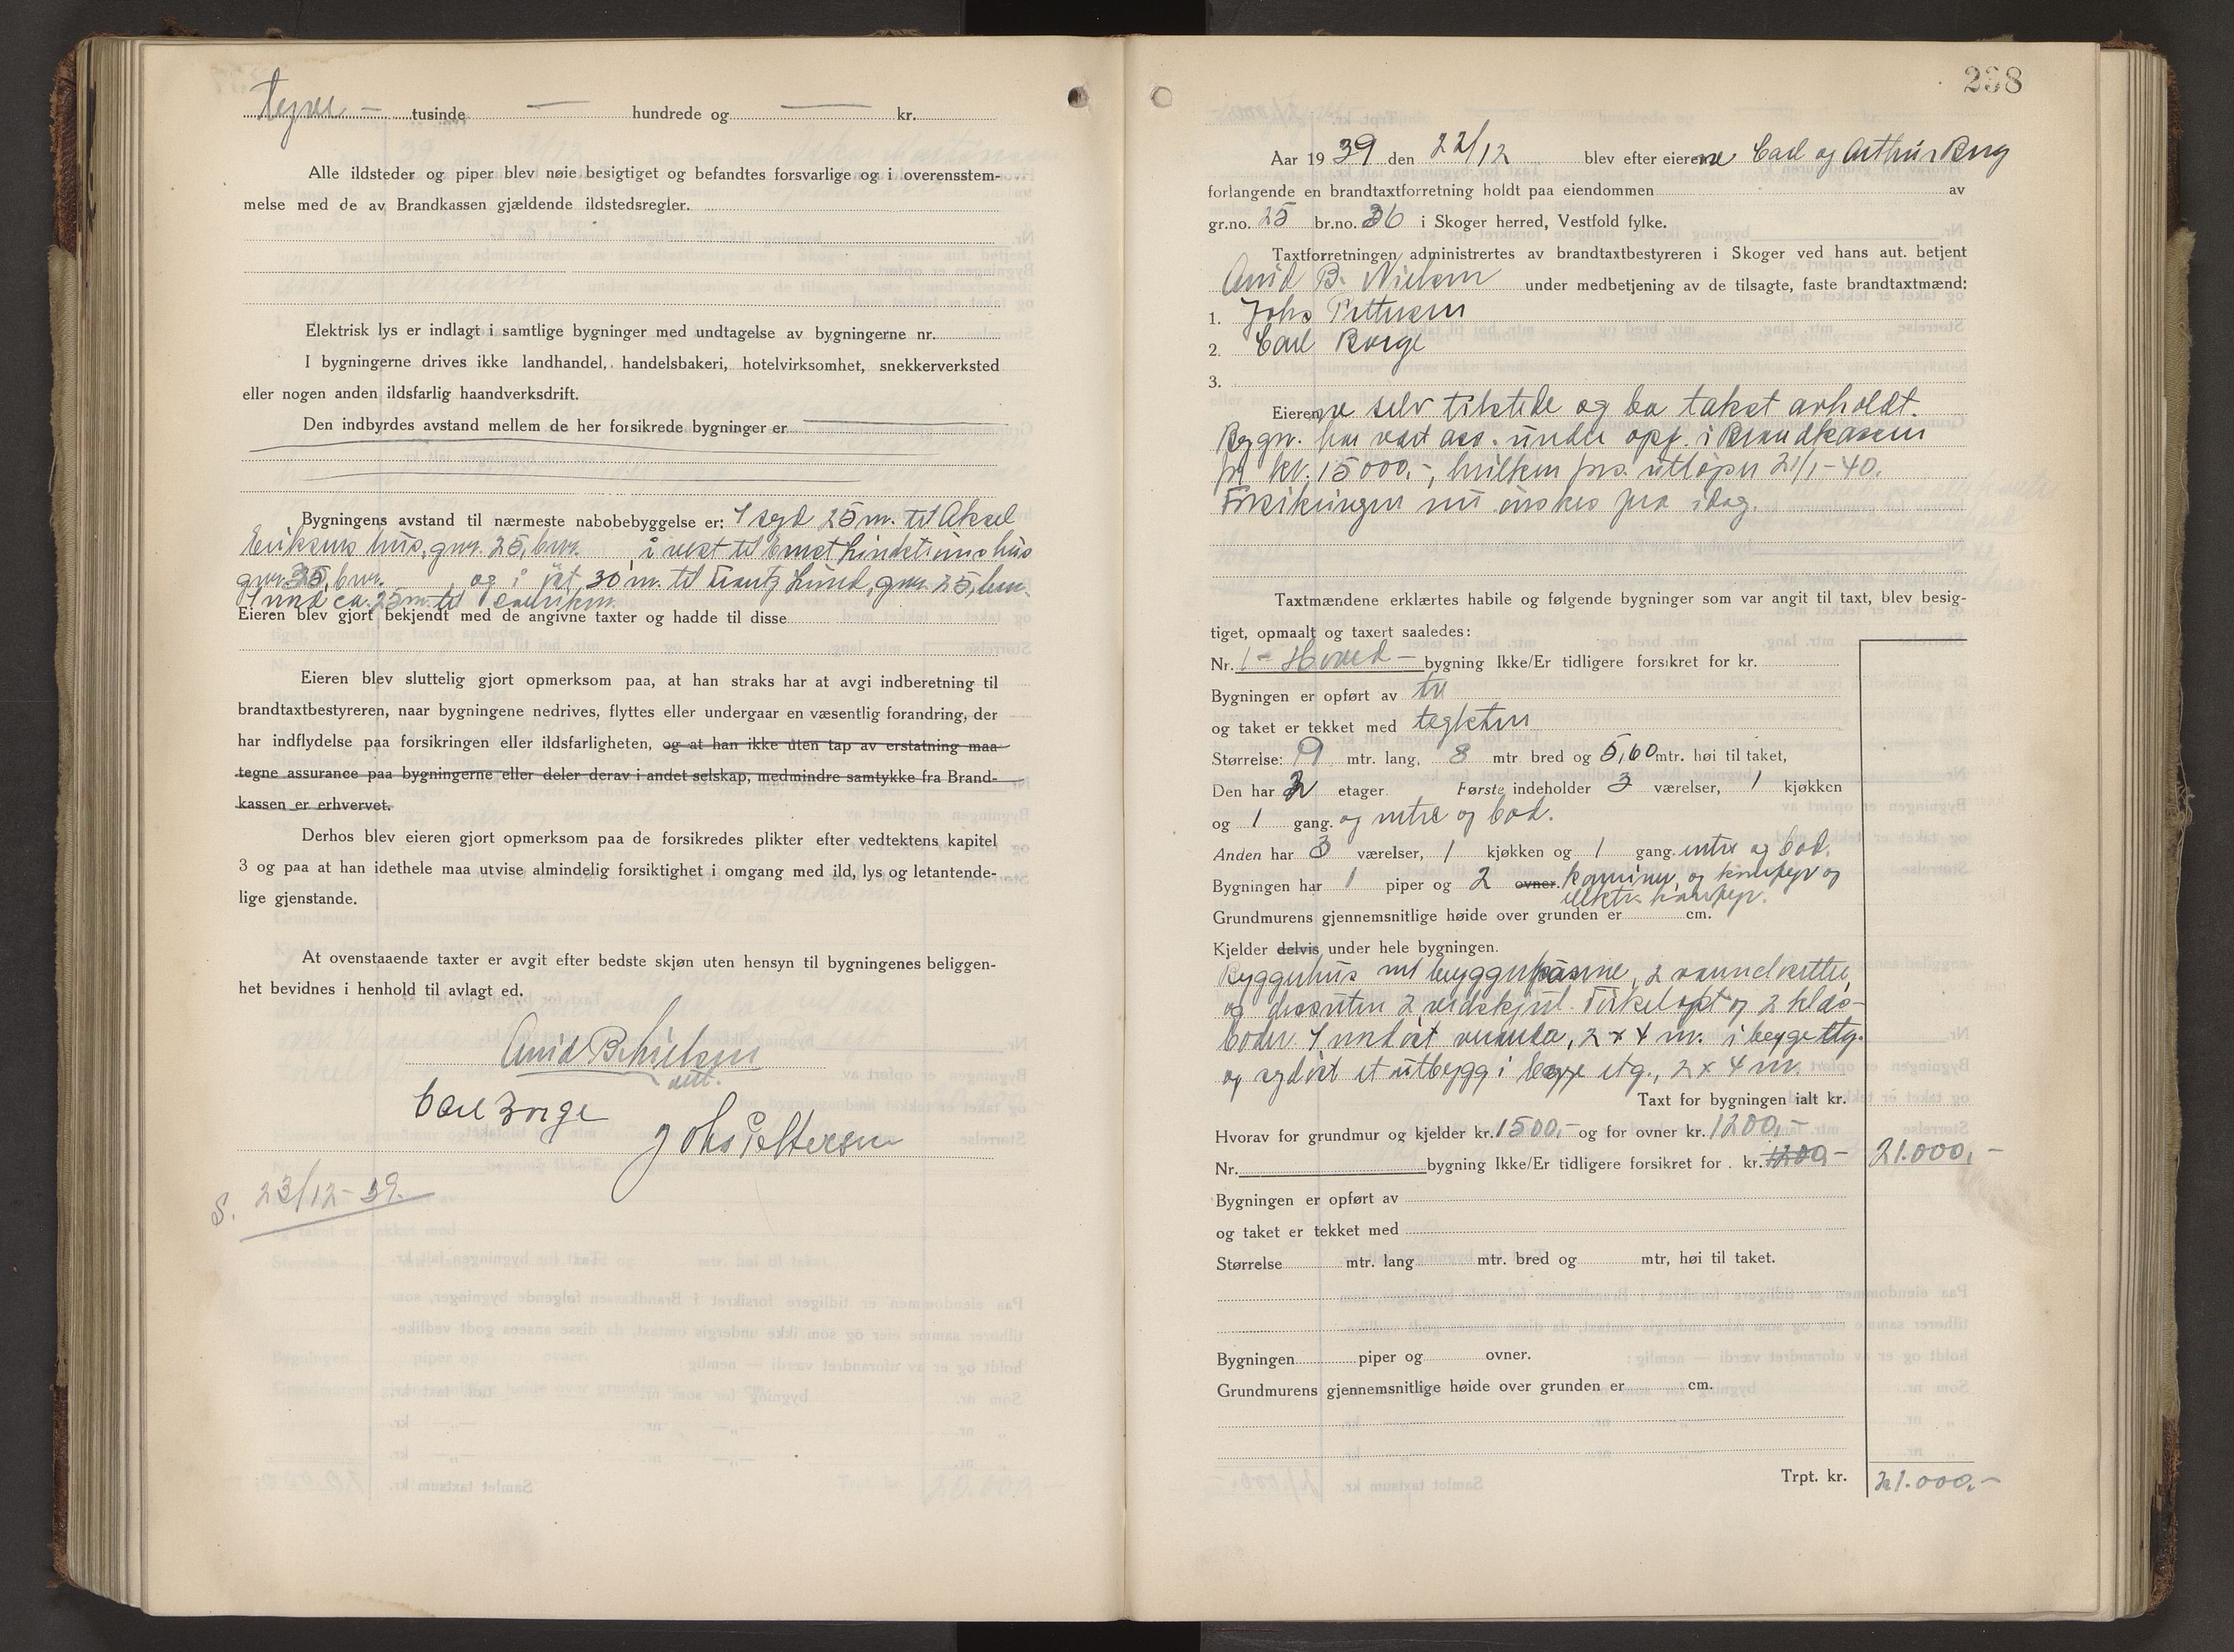 tyve – tusinde — hundrede og — kr.
Alle ildsteder og piper blev nøie besigtiget og befandtes forsvarlige og i overensstem-
melse med de av Brandkassen gjældende ildstedsregler.
Elektrisk lys er indlagt i samtlige bygninger med undtagelse av bygningerne nr.
I bygningerne drives ikke landhandel, handelsbakeri, hotelvirksomhet, snekkerverksted
eller nogen anden ildsfarlig haandverksdrift.
Den indbyrdes avstand mellem de her forsikrede bygninger er
Bygningens avstand til nærmeste nabobebyggelse er: I syd 25 m. til Aksel
Eriksens hus, gnr. 25, bnr. i vest til Ernst Lindstrøms hus
gnr. 25, bnr. , og i øst 30 m. til Frantz Lund, gnr. 25, bnr.
I nord ca. 25 m. til
Eieren blev gjort bekjendt med de angivne taxter og hadde til disse
Eieren blev sluttelig gjort opmerksom paa, at han straks har at avgi indberetning til
brandtaxtbestyreren, naar bygningene nedrives, flyttes eller undergaar en væsentlig forandring, der
har indflydelse paa forsikringen eller ildsfarligheten, og at han ikke uten tap av erstatning maa
tegne assurance paa bygningerne eller deler derav i andet selskap, medmindre samtykke fra Brand-
kassen er erhvervet.
Derhos blev eieren gjort opmerksom paa de forsikredes plikter efter vedtektens kapitel
3 og paa at han idethele maa utvise almindelig forsiktighet i omgang med ild, lys og letantende-
lige gjenstande.
At ovenstaaende taxter er avgit efter bedste skjøn uten hensyn til bygningenes beliggen-
het bevidnes i henhold til avlagt ed.
Arvid B. Nielsen
Carl Borge
Johs Pettersen
S. 23/12-39.
238
Aar 1939 den 22/12 blev efter eierene Carl og Arthur Berg
forlangende en brandtaxtforretning holdt paa eiendommen av
gr.no. 25 br.no. 36 i Skoger herred, Vestfold fylke.
Taxtforretningen administrertes av brandtaxtbestyreren i Skoger ved hans aut. betjent
Arvid B. Nielsen under medbetjening av de tilsagte, faste brandtaxtmænd:
1. Johs Pettersen
2. Carl Borge
3.
Eierene selv tilstede og ba takst avholdt.
Bygn. har vært ass. under opf. i Brandkassen
for kr. 15000.-, hvilken fors. utløper 21/1-40.
Forsikringen nu ønskes fra idag.
Taxtmændene erklærtes habile og følgende bygninger som var angit til taxt, blev besig-
tiget, opmaalt og taxert saaledes:
Nr. 1 - Hoved - bygning Ikke/Er tidligere forsikret for kr.
Bygningen er opført av tre
og taket er tekket med teglsten
Størrelse: 9 mtr. lang, 8 mtr bred og 5,60 mtr. høi til taket,
Den har 2 etager. Første indeholder 3 værelser, 1 kjøkken
og 1 gang. og entre og bod.
Anden har 3 værelser, 1 kjøkken og 1 gang. entre og bod.
Bygningen har 1 piper og 2 ovner. kaminer og komfyr og
elektr. komfyr.
Grundmurens gjennemsnitlige høide over grunden er cm.
Kjelder delvis under hele bygningen.
Bryggerhus m/ bryggerpanne, 2
og dessuten 2 vedskjul. Tørkeloft og 2 klæs-
boder. I nordøst veranda, 2 x 4 m. i begge etg.
og sydøst et utbygg i begge etg., 2 x 4 m.
Taxt for bygningen ialt kr.
Hvorav for grundmur og kjelder kr. 1500,- og for ovner kr. 1200,-
21.000,-
Nr. bygning Ikke/Er tidligere forsikret for . kr. 1200,-
Bygningen er opført av
og taket er tekket med
Størrelse mtr. lang mtr. bred og mtr, høi til taket.
Bygningen piper og ovner.
Grundmurens gjennemsnitlige høide over grunden er cm.
Trpt. kr. 21.000,-